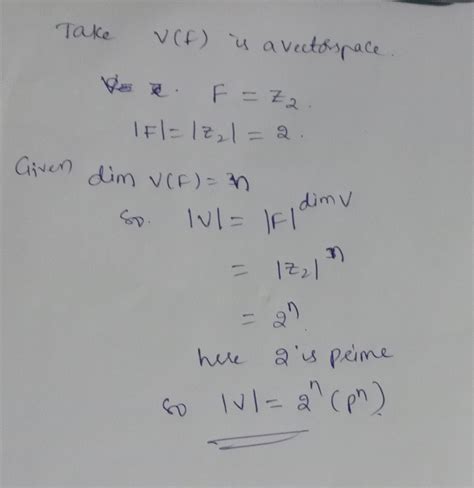 Take V(F) is a vectorspace.
F = Z₂.
|F| = |Z₂| = 2.
Given dim V(F) = n
So. |V| = |F|^dim V
= |Z₂|^n
= 2^n
here 2 is prime
so |V| = 2^n (p^n)